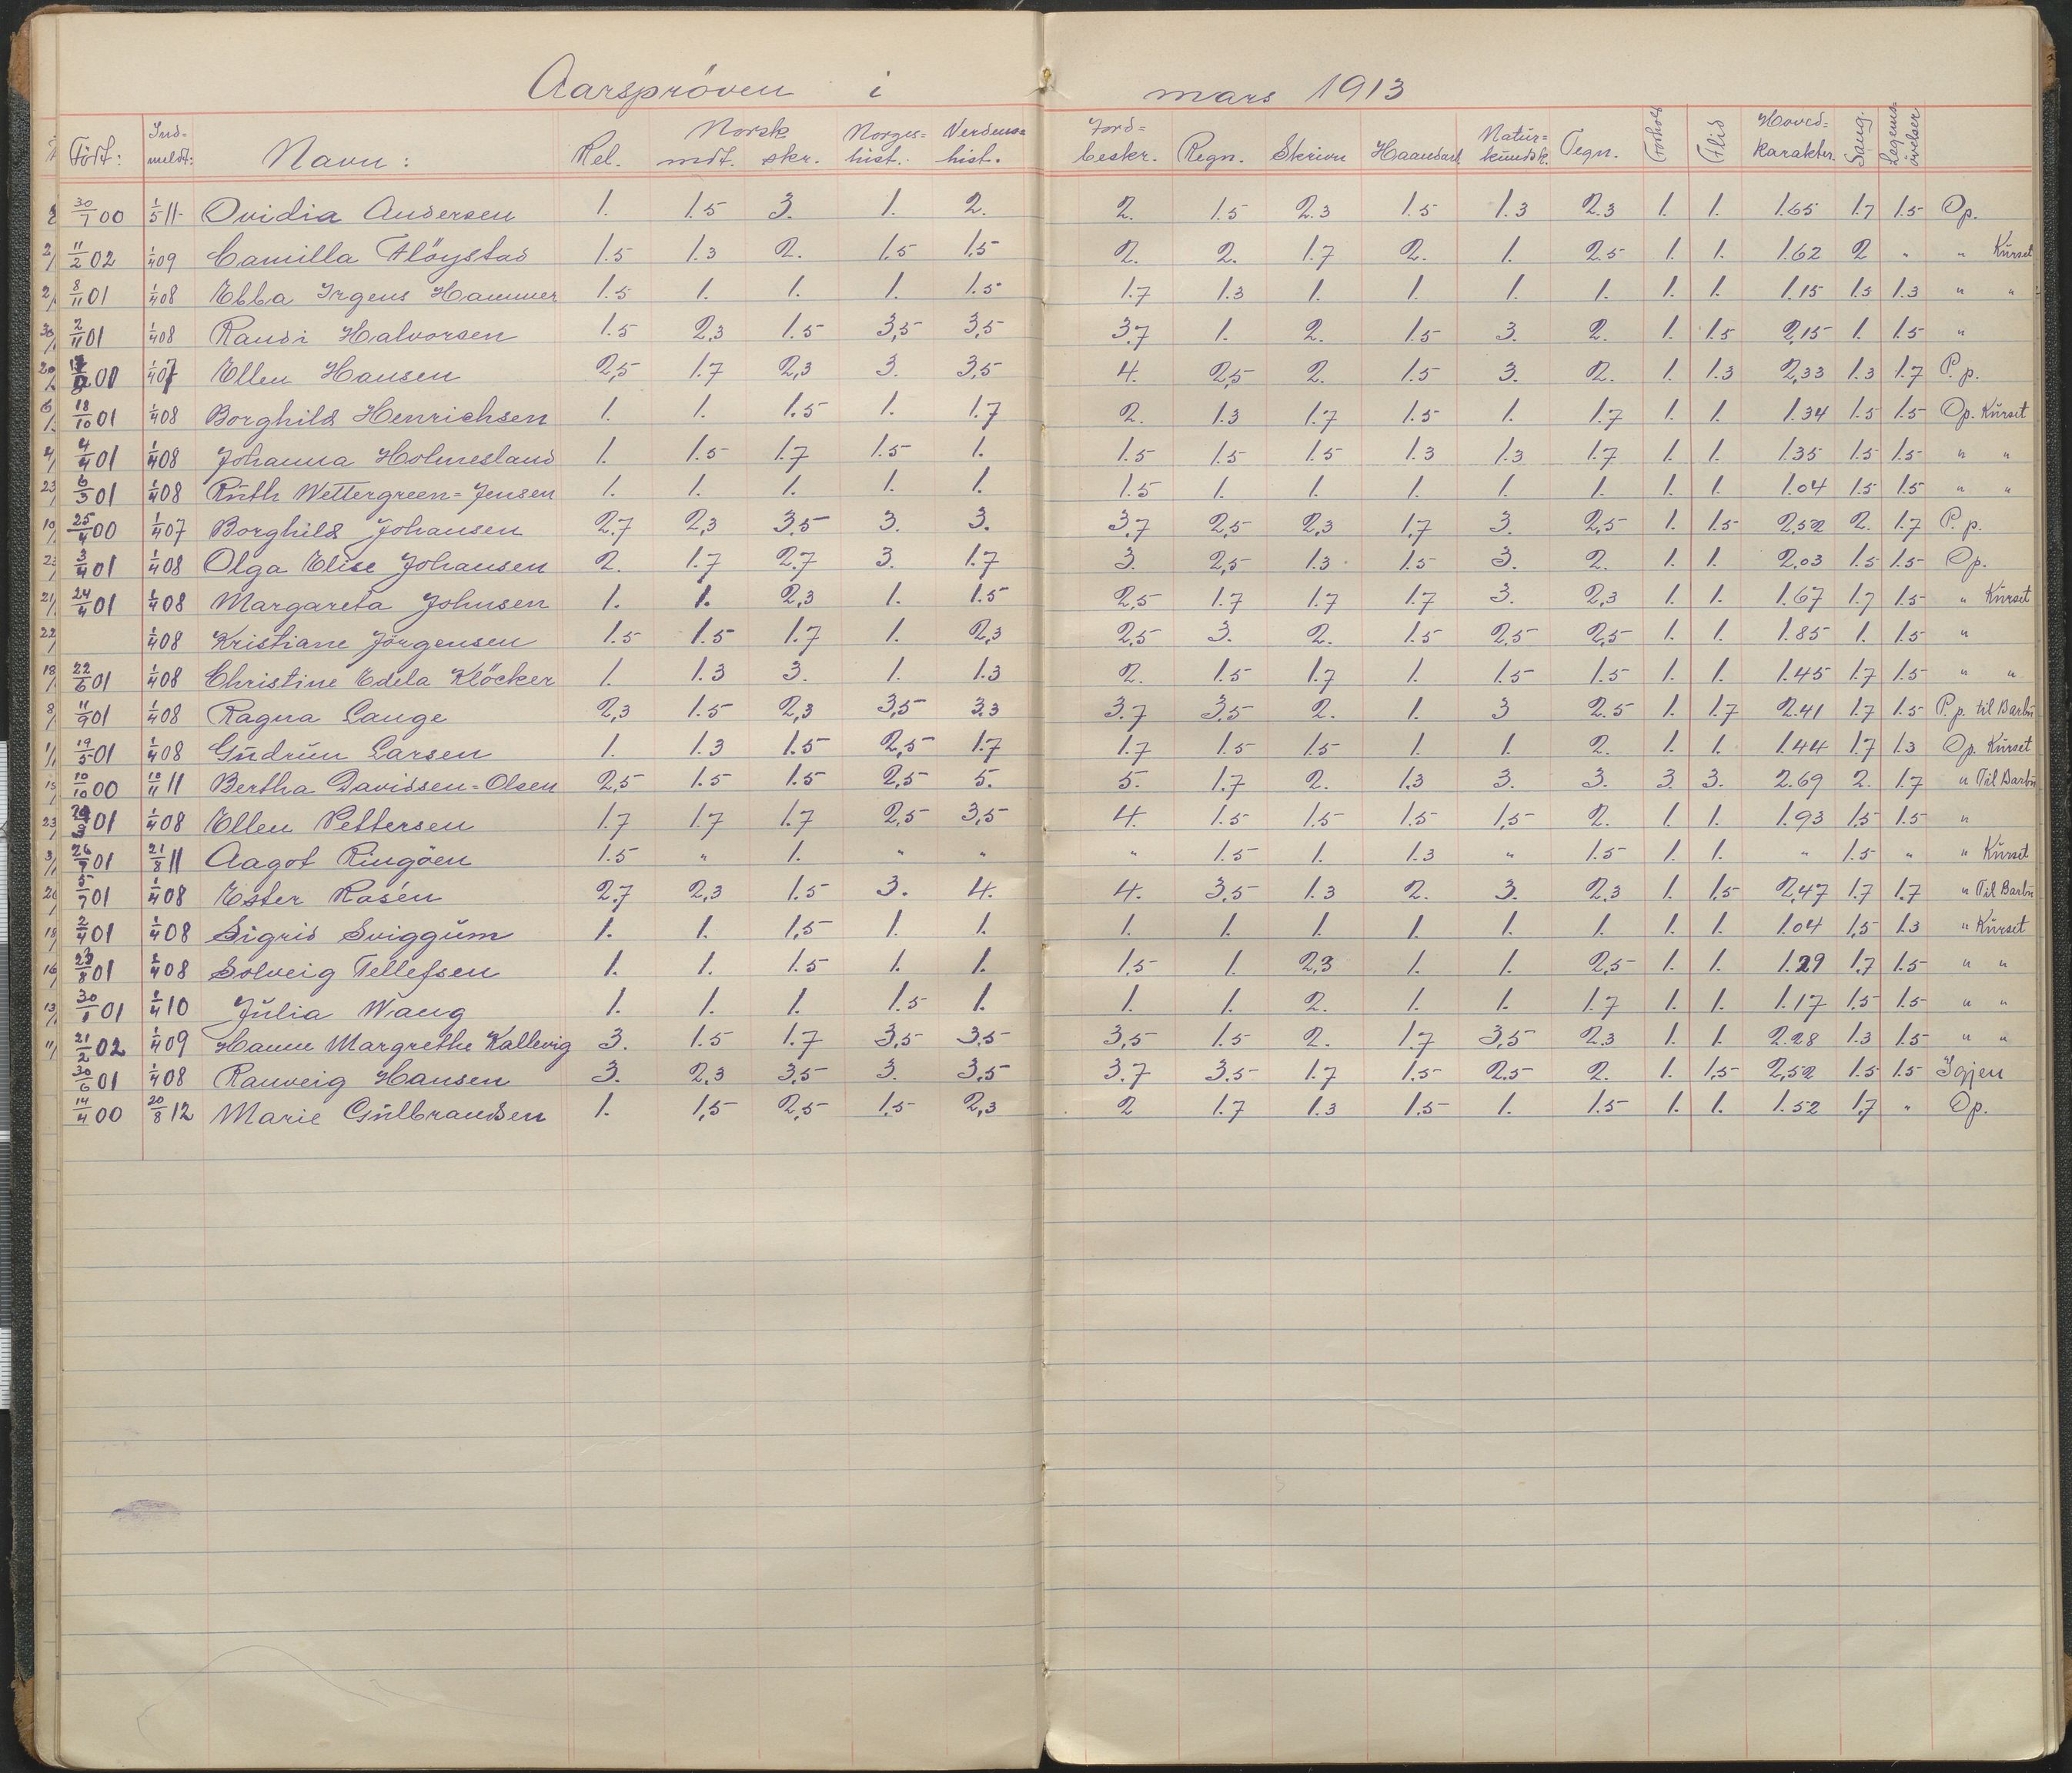 Aarsprøven i mars 1913
Født: Ind=meldt: Navn: Rel. Norsk mdt. skr. Norges=hist. Verdens=hist. Jord=beskr. Regn. Skrivn Haandarb Natur=kundsk. Tegn. Forhold Flid Hoved=karakter. Sang. Legems=øvelser
30/7 00 1/5 11 Ovidia Andersen 1. 1.5 3. 1. 2. 2. 1.5 2.3 1.5 1.3 2.3 1. 1. 1.65 1.7 1.5 Op.
11/2 02 1/4 09 Camilla Fløystad 1.5 1.3 2. 1.5 1.5 2. 2. 1.7 2. 1. 2.5 1. 1. 1.62 2 " " Kurset
8/11 01 1/4 08 Ebba Irgens Hammer 1.5 1. 1. 1. 1.5 1.7 1.3 1. 1. 1. 1. 1. 1. 1.15 1.5 1.3 " "
2/11 01 1/4 08 Randi Halvorsen 1.5 2,3 1.5 3,5 3,5 3.7 1. 2. 1.5 3. 2. 1. 1.5 2,15 1. 1.5 "
01 1/4 07 Ellen Hansen 2,5 1.7 2,3 3. 3,5 4. 2,5 2. 1.5 3. 2. 1. 1.3 2,33 1.3 1.7 P.p.
18/10 01 1/4 08 Borghild Henrichsen 1. 1. 1.5 1. 1.7 2. 1.3 1.7 1.5 1. 1.7 1. 1. 1.34 1.5 1.5 Op. Kurset
4/4 01 1/4 08 Johanna Holmesland 1. 1.5 1.7 1.5 1. 1.5 1.5 1.5 1.3 1.3 1.7 1. 1. 1.35 1.5 1.5 " "
6/3 01 1/4 08 Ruth Wettergreen=Jensen 1. 1. 1. 1. 1. 1.5 1. 1. 1. 1. 1. 1. 1. 1.04 1.5 1.5 " "
25/4 00 1/4 07 Borghild Johansen 2.7 2,3 3.5 3. 3. 3.7 2,5 2,3 1,7 3. 2,5 1. 1.5 2,52 2. 1.7 P.p.
3/4 01 1/4 08 Olga Elise Johansen 2. 1.7 2.7 3. 1.7 3. 2,5 1.3 1.5 3. 2. 1. 1. 2,03 1.5 1.5 Op.
24/4 01 1/4 08 Margareta Johnsen 1. 1. 2,3 1. 1.5 2,5 1.7 1.7 1.7 3. 2,3 1. 1. 1.67 1.7 1.5 " Kurset
1/4 08 Kristiane Jørgensen 1.5 1.5 1.7 1. 2,3 2,5 3. 2. 1.5 2,5 2,5 1. 1. 1.85 1. 1.5 "
22/6 01 1/4 08 Christine Edela Kløcker 1. 1.3 3. 1. 1.3 2. 1.5 1.7 1. 1.5 1.5 1. 1. 1.45 1.7 1.5 " "
11/9 01 1/4 08 Ragna Lange 2,3 1.5 2,3 3,5 3.3 3.7 3.5 2. 1. 3 2.5 1. 1.7 2.41 1.7 1.5 P.p. til Barbu
19/5 01 1/4 08 Gudrun Larsen 1. 1.3 1.5 2,5 1.7 1.7 1.5 1.5 1. 1. 2. 1. 1. 1.44 1.7 1.3 Op. Kurset
10/10 00 10/11 11 Bertha Davidsen=Olsen 2,5 1.5 1.5 2,5 5. 5. 1.7 2. 1.3 3. 3. 3. 3. 2.69 2. 1.7 " Til Barbu
01 1/4 08 Ellen Pettersen 1.7 1.7 1.7 2,5 3,5 4. 1.5 1.5 1.5 1,5 2. 1. 1. 1.93 1.5 1.5 "
26/7 01 21/8 11 Aagot Ringøen 1.5 " 1. " " " 1.5 1. 1.3 " 1.5 1. 1. " 1.5 " " Kurset
5/7 01 1/4 08 Ester Rosén 2.7 2,3 1.5 3. 4. 4. 3,5 1.3 2. 3. 2,3 1. 1,5 2,47 1.7 1.7 " Til Barbu
2/4 01 1/4 08 Sigrid Sviggum 1. 1. 1,5 1. 1. 1. 1. 1. 1. 1. 1. 1. 1. 1.04 1,5 1.3 " Kurset
23/8 01 1/4 08 Solveig Tellefsen 1. 1. 1.5 1. 1. 1,5 1. 2,3 1. 1. 2,5 1. 1. 1.29 1,7 1.5 " "
30/1 01 1/4 10 Julia Wang 1. 1. 1. 1.5 1. 1. 1. 2. 1. 1. 1.7 1. 1. 1.17 1.5 1.5 " "
21/2 02 1/4 09 Hanne Margrethe Kallevig 3. 1.5 1.7 3,5 3.5 3,5 1.5 2. 1.7 3,5 2.3 1. 1. 2.28 1.3 1.5 " "
30/6 01 1/4 08 Ranveig Hansen 3. 2,3 3,5 3. 3,5 3.7 3.5 1.7 1.5 2.5 2. 1. 1,5 2,52 1.5 1.5 Igjen
14/4 00 20/8 12 Marie Gulbrandsen 1. 1,5 2,5 1,5 2,3 2 1.7 1.3 1.5 1. 1.5 1. 1. 1.52 1,7 " Op.